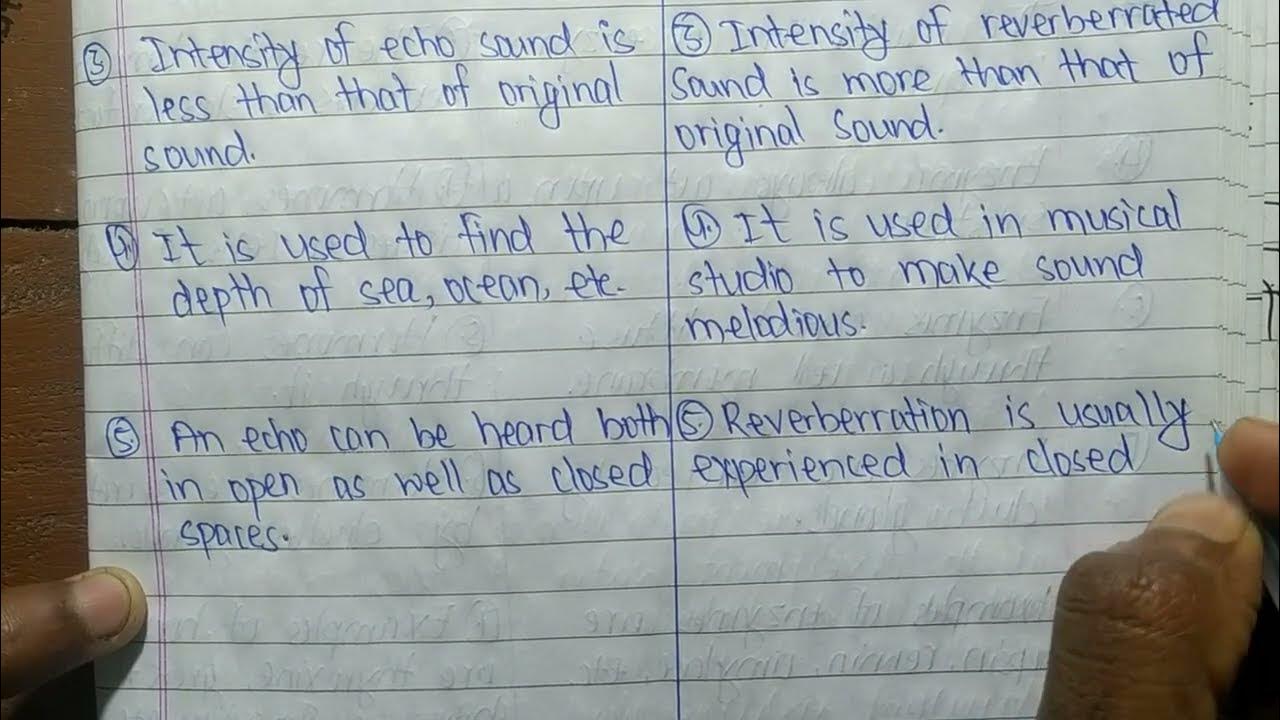 ③ Intensity of echo sound is
less than that of original
sound.
③ Intensity of reverberrated
sound is more than that of
original sound.
④ It is used to find the
depth of sea, ocean, etc.
④ It is used in musical
studio to make sound
melodious.
⑤ An echo can be heard both
in open as well as closed
spaces.
⑤ Reverberration is usually
experienced in closed